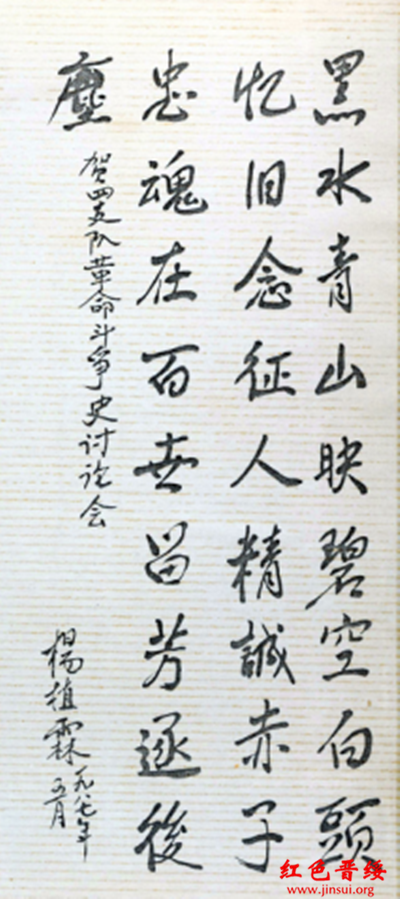 黑水青山映碧空白頭
忆旧念征人精誠赤子
忠魂在百世留芳逐後
塵
贺四支队革命斗争史讨论会
楊植霖一九八七年
五月
红色晋绥
www.jinsui.org